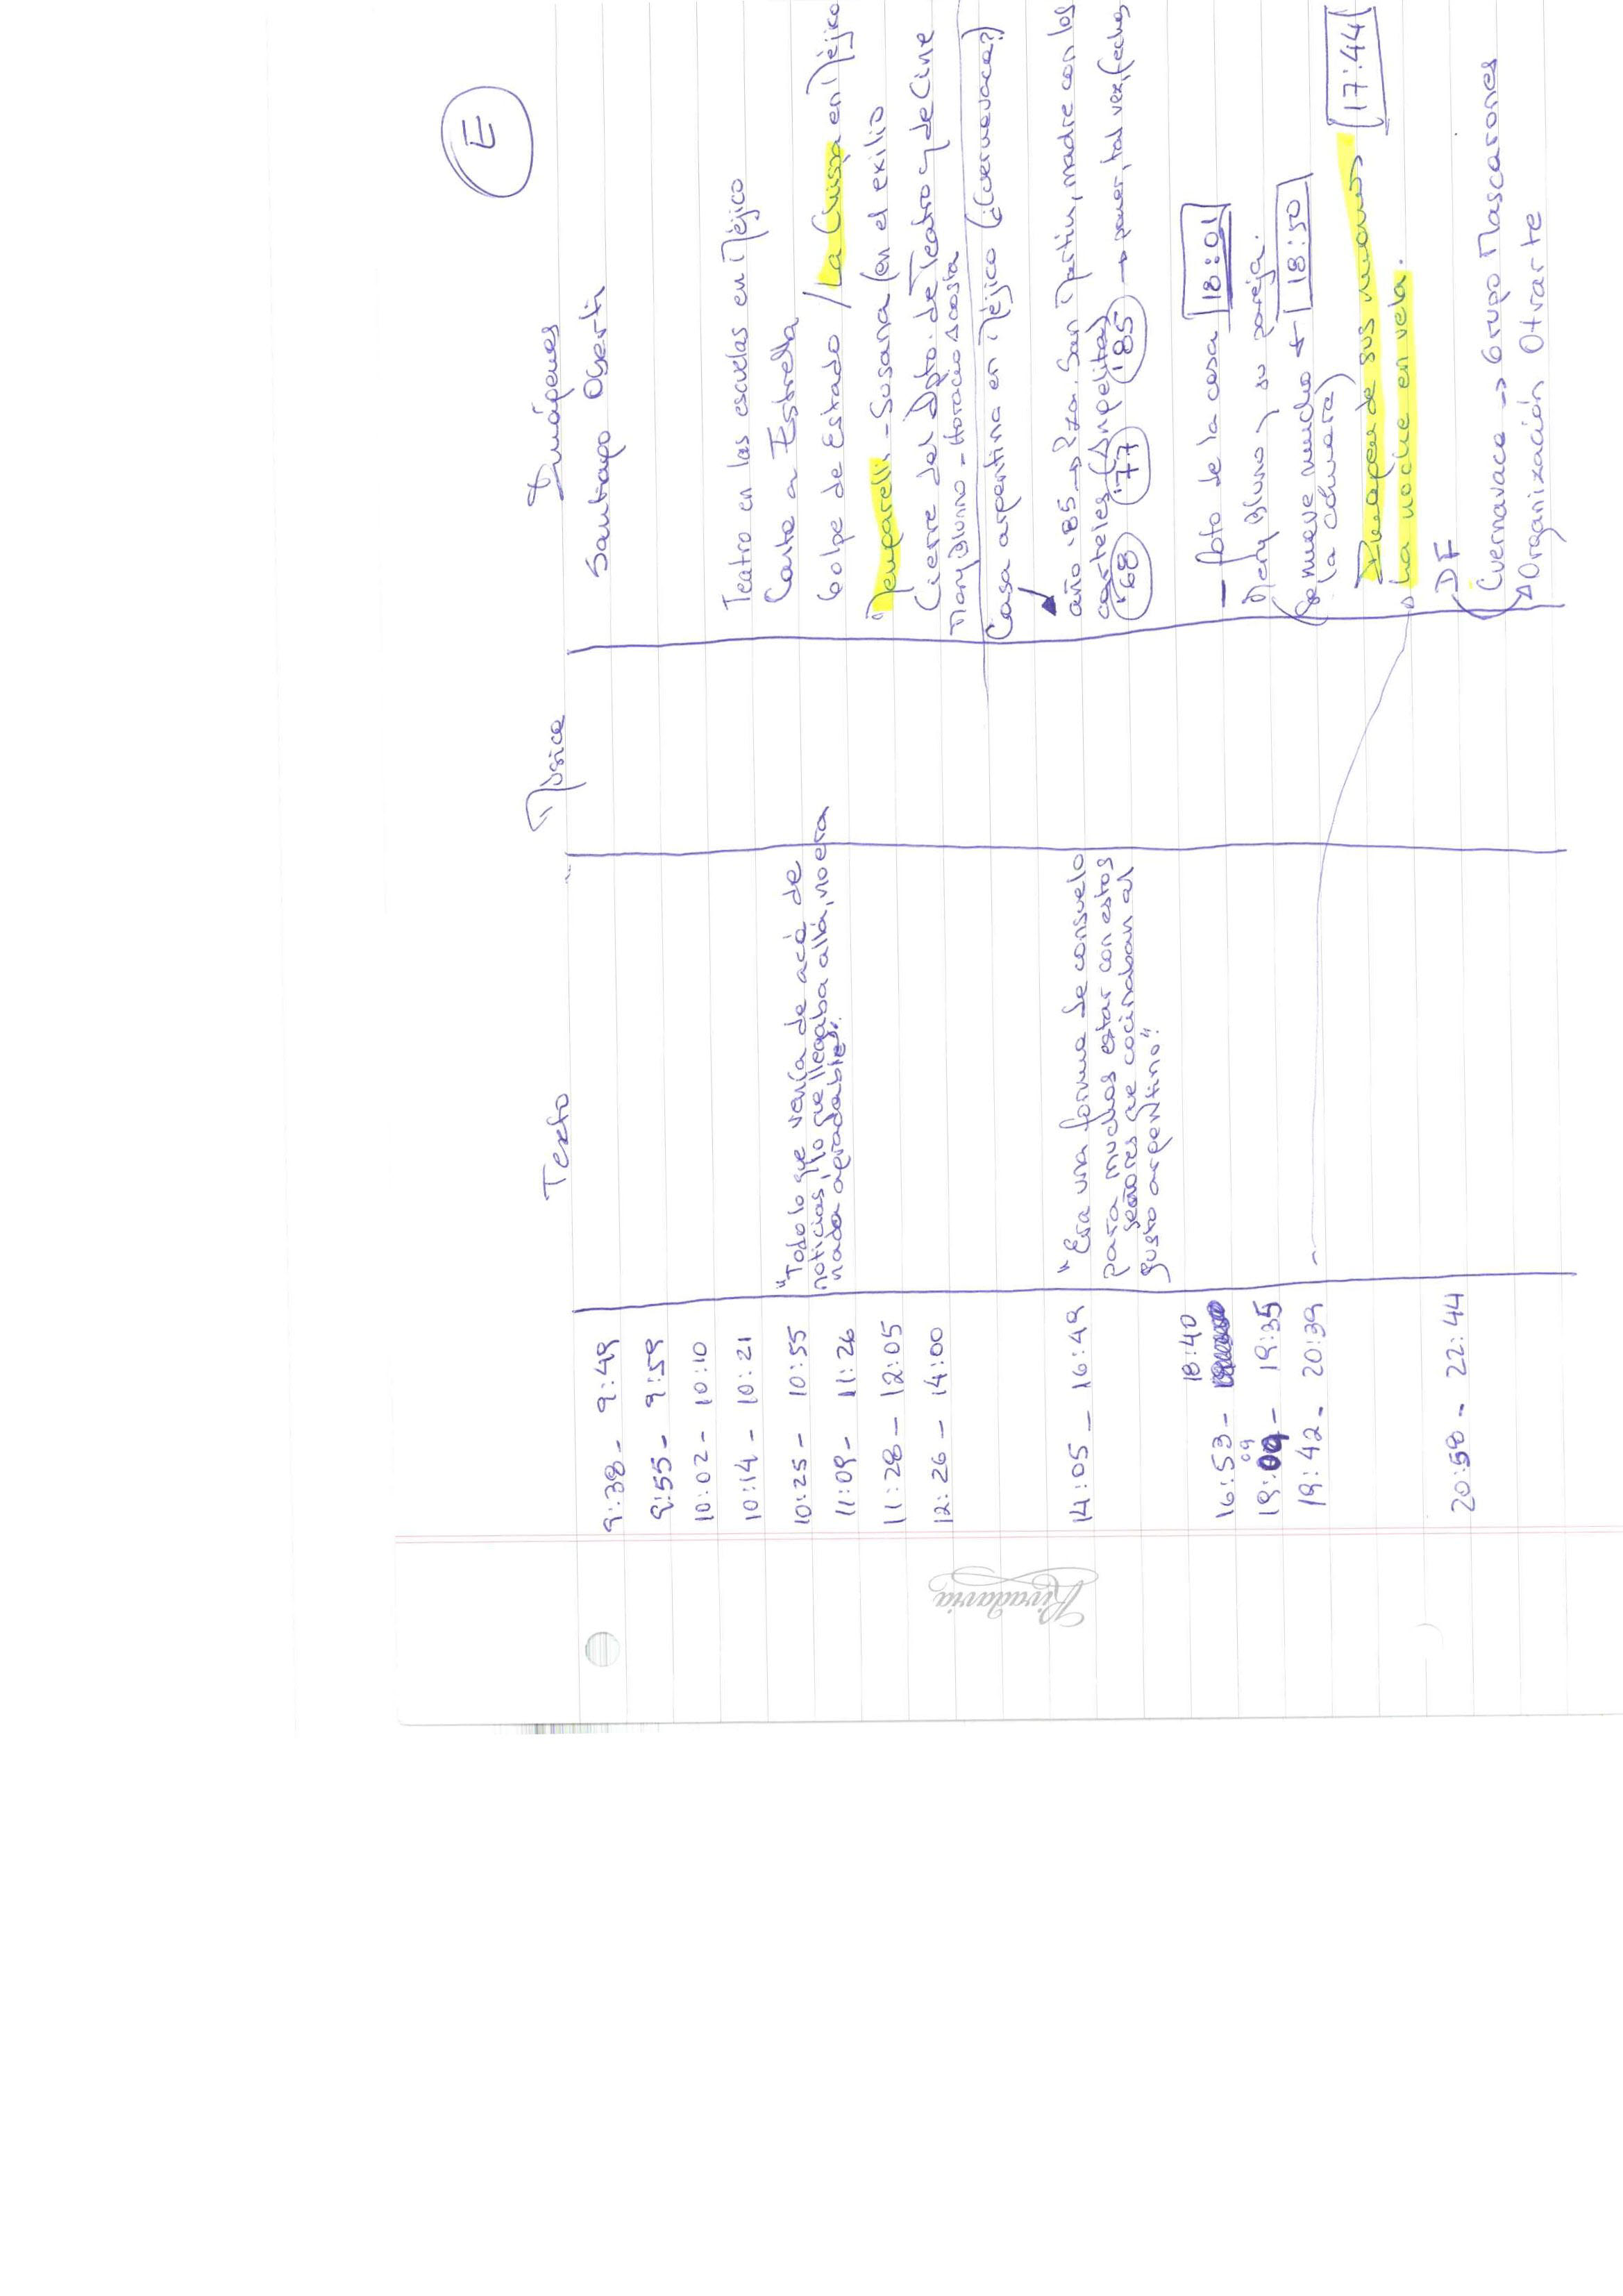 E
Texto Música Imágenes
9:38 - 9:49 Santiago Oserti
9:55 - 9:59
10:02 - 10:10
10:14 - 10:21 Teatro en las escuelas en Méjico
Carta a Estrella
10:25 - 10:55 "Todo lo que venía de acá de Golpe de Estado / La en Méjico
noticias, lo que llegaba allá, no era
nada agradable".
11:09 - 11:26 - Susana (en el exilio
11:28 - 12:05 Cierre del Dpto. de Teatro y de Cine
12:26 - 14:00 Mary Blunno - Horacio Acosta
Casa argentina en Méjico (¿Cuernavaca?)
14:05 - 16:49 "Era una forma de consuelo año '85 → Pza. San Martín, madre con los
para muchos estar con estos carteles (Angelita)
señores que cocinaban al '68 '77 '85 → poner, tal vez, fechas
gusto argentino".
18:40
16:53 - - foto de la casa 18:01
09
19:09 - 19:35 Mary Blunno y su pareja.
19:42 - 20:39 (se mueve mucho ← 18:50
la cámara)
Imagen de sus manos 17:44
la noche en vela.
20:58 - 22:44 DF
Cuernavaca → Grupo Mascarones
Organización Otrarte
Rivadavia